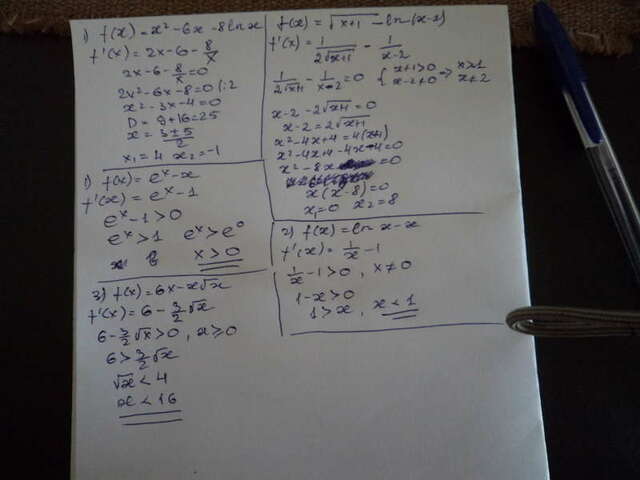 1) f(x) = x² - 6x - 8ln x
f'(x) = 2x - 6 - 8/x
2x - 6 - 8/x = 0
2x² - 6x - 8 = 0 |:2
x² - 3x - 4 = 0
D = 9 + 16 = 25
x = (3 ± 5)/2
x₁ = 4 x₂ = -1
1) f(x) = eˣ - x
f'(x) = eˣ - 1
eˣ - 1 > 0
eˣ > 1 eˣ > e⁰
x > 0
3) f(x) = 6x - x√x
f'(x) = 6 - 3/2 √x
6 - 3/2 √x > 0, x ≥ 0
6 > 3/2 √x
√x < 4
x < 16
f(x) = √(x+1) - ln(x-2)
f'(x) = 1/(2√(x+1)) - 1/(x-2)
1/(2√(x+1)) - 1/(x-2) = 0 { x+1 > 0 x-2 ≠ 0 => x > 1 x ≠ 2
x - 2 - 2√(x+1) = 0
x - 2 = 2√(x+1)
x² - 4x + 4 = 4(x+1)
x² - 4x + 4 - 4x - 4 = 0
x² - 8x = 0
x(x-8) = 0
x₁ = 0 x₂ = 8
2) f(x) = ln x - x
f'(x) = 1/x - 1
1/x - 1 > 0, x ≠ 0
1 - x > 0
1 > x, x < 1